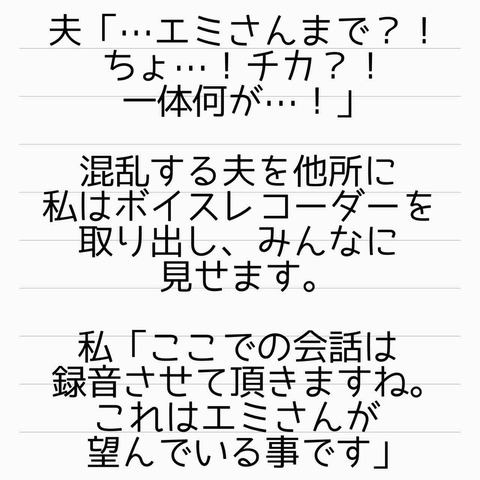 夫「…エミさんまで？！
ちょ…！チカ？！
一体何が…！」
混乱する夫を他所に
私はボイスレコーダーを
取り出し、みんなに
見せます。
私「ここでの会話は
録音させて頂きますね。
これはエミさんが
望んでいる事です」